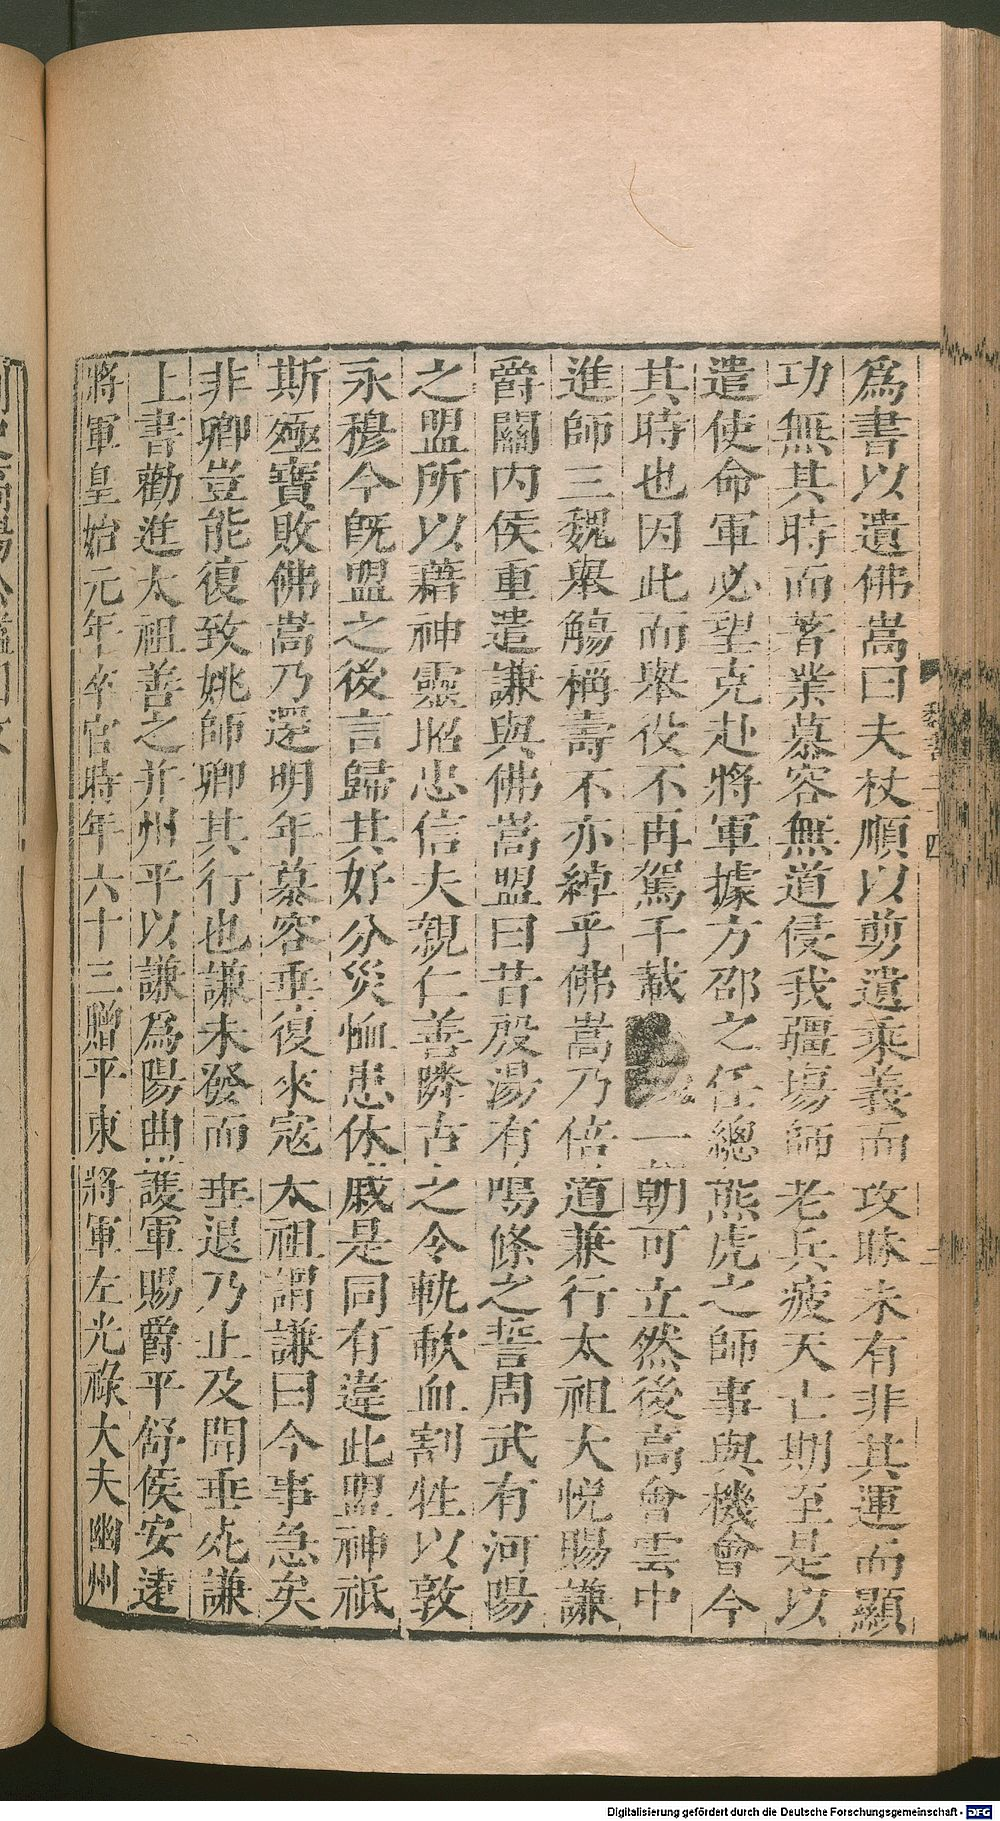 爲書以遺佛嵩曰夫杖順以剪遺乘義而攻昧未有非其運而顯
功無其時而著業慕容無道侵我疆埸師老兵疲天亡期至是以
遣使命軍必望克赴將軍據方邵之任總熊虎之師事與機會今
其時也因此而舉役不再駕千載一朝可立然後高會雲中
進師三魏舉觴稱壽不亦綽乎佛嵩乃倍道兼行太祖大悅賜謙
爵關內侯重遣謙與佛嵩盟曰昔殷湯有鳴條之誓周武有河陽
之盟所以藉神靈昭忠信夫親仁善隣古之令軌歃血割牲以敦
永穆今旣盟之後言歸其好分災恤患休戚是同有違此盟神祇
斯殛寶敗佛嵩乃還明年慕容垂復來寇太祖謂謙曰今事急矣
非卿豈能復致姚師卿其行也謙未發而垂退乃止及聞垂死謙
上書勸進太祖善之并州平以謙爲陽曲護軍賜爵平舒侯安遠
將軍皇始元年卒官時年六十三贈平東將軍左光祿大夫幽州
魏書二十四
Digitalisierung gefördert durch die Deutsche Forschungsgemeinschaft - DFG